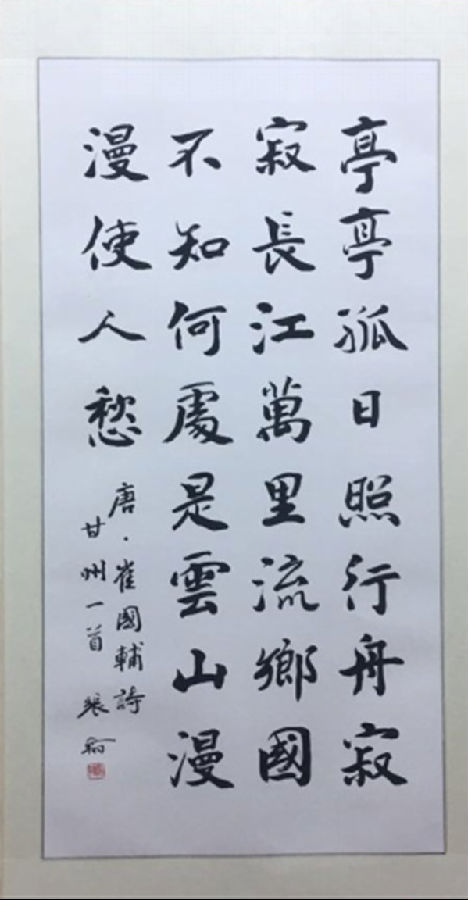 亭亭孤日照行舟寂
寂長江萬里流鄉國
不知何處是雲山漫
漫使人愁
唐·崔國輔詩
甘州一首 張